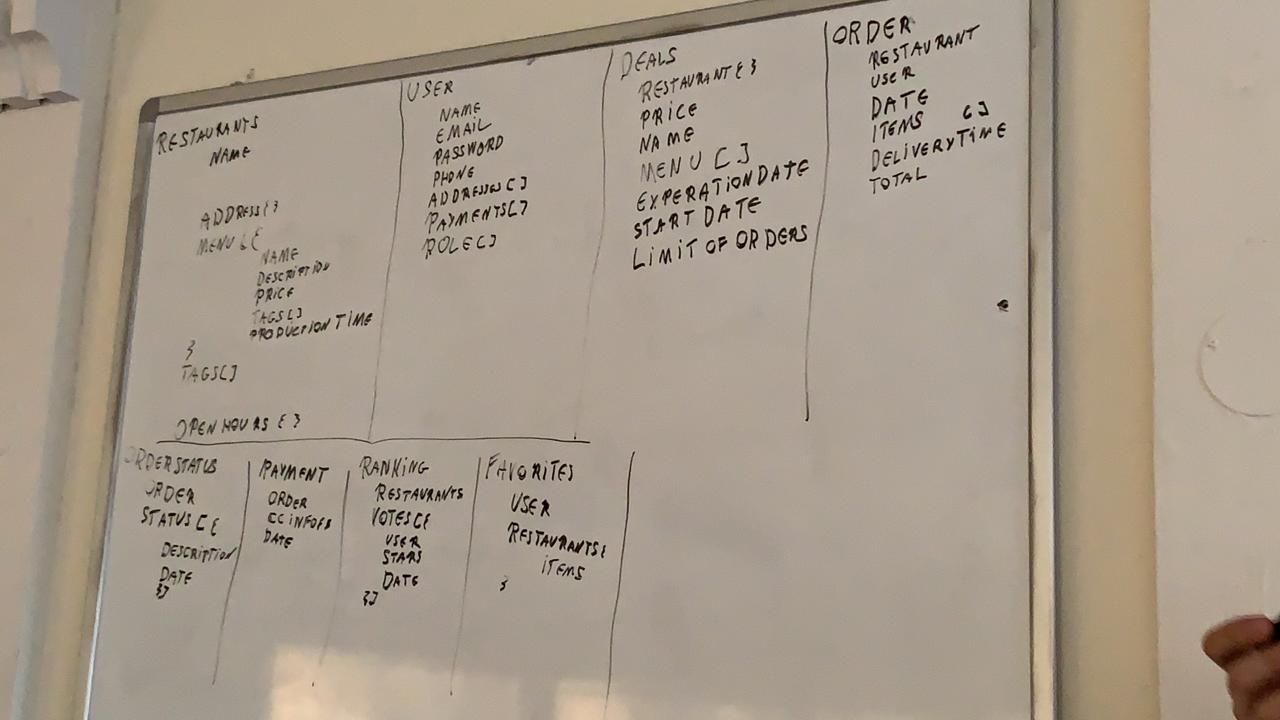 RESTAURANTS
NAME
ADDRESS{}
MENU[{
NAME
DESCRIPTION
PRICE
TAGS[]
PRODUCTION TIME
}
TAGS[]
OPEN HOURS {}
USER
NAME
EMAIL
PASSWORD
PHONE
ADDRESSES[]
PAYMENTS[]
ROLE[]
DEALS
RESTAURANT{}
PRICE
NAME
MENU []
EXPERATION DATE
START DATE
LIMIT OF ORDERS
ORDER
RESTAURANT
USER
DATE
ITEMS []
DELIVERY TIME
TOTAL
ORDER STATUS
ORDER
STATUS [{
DESCRIPTION
DATE
}]
PAYMENT
ORDER
CC INFO{}
DATE
RANKING
RESTAURANTS
VOTES[{
USER
STARS
DATE
}]
FAVORITES
USER
RESTAURANTS{
ITEMS
}